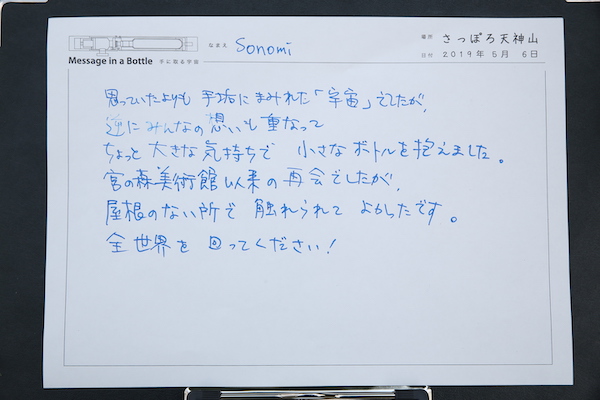 なまえ Sonomi
場所 さっぽろ天神山
日付 2019年5月6日
Message in a Bottle 手に取る宇宙
思っていたよりも 手垢にまみれた「宇宙」でしたが、
逆にみんなの想いも重なって
ちょっと大きな気持ちで 小さなボトルを抱えました。
宮の森美術館以来の再会でしたが、
屋根のない所で 触れられて よかったです。
全世界を 回ってください!